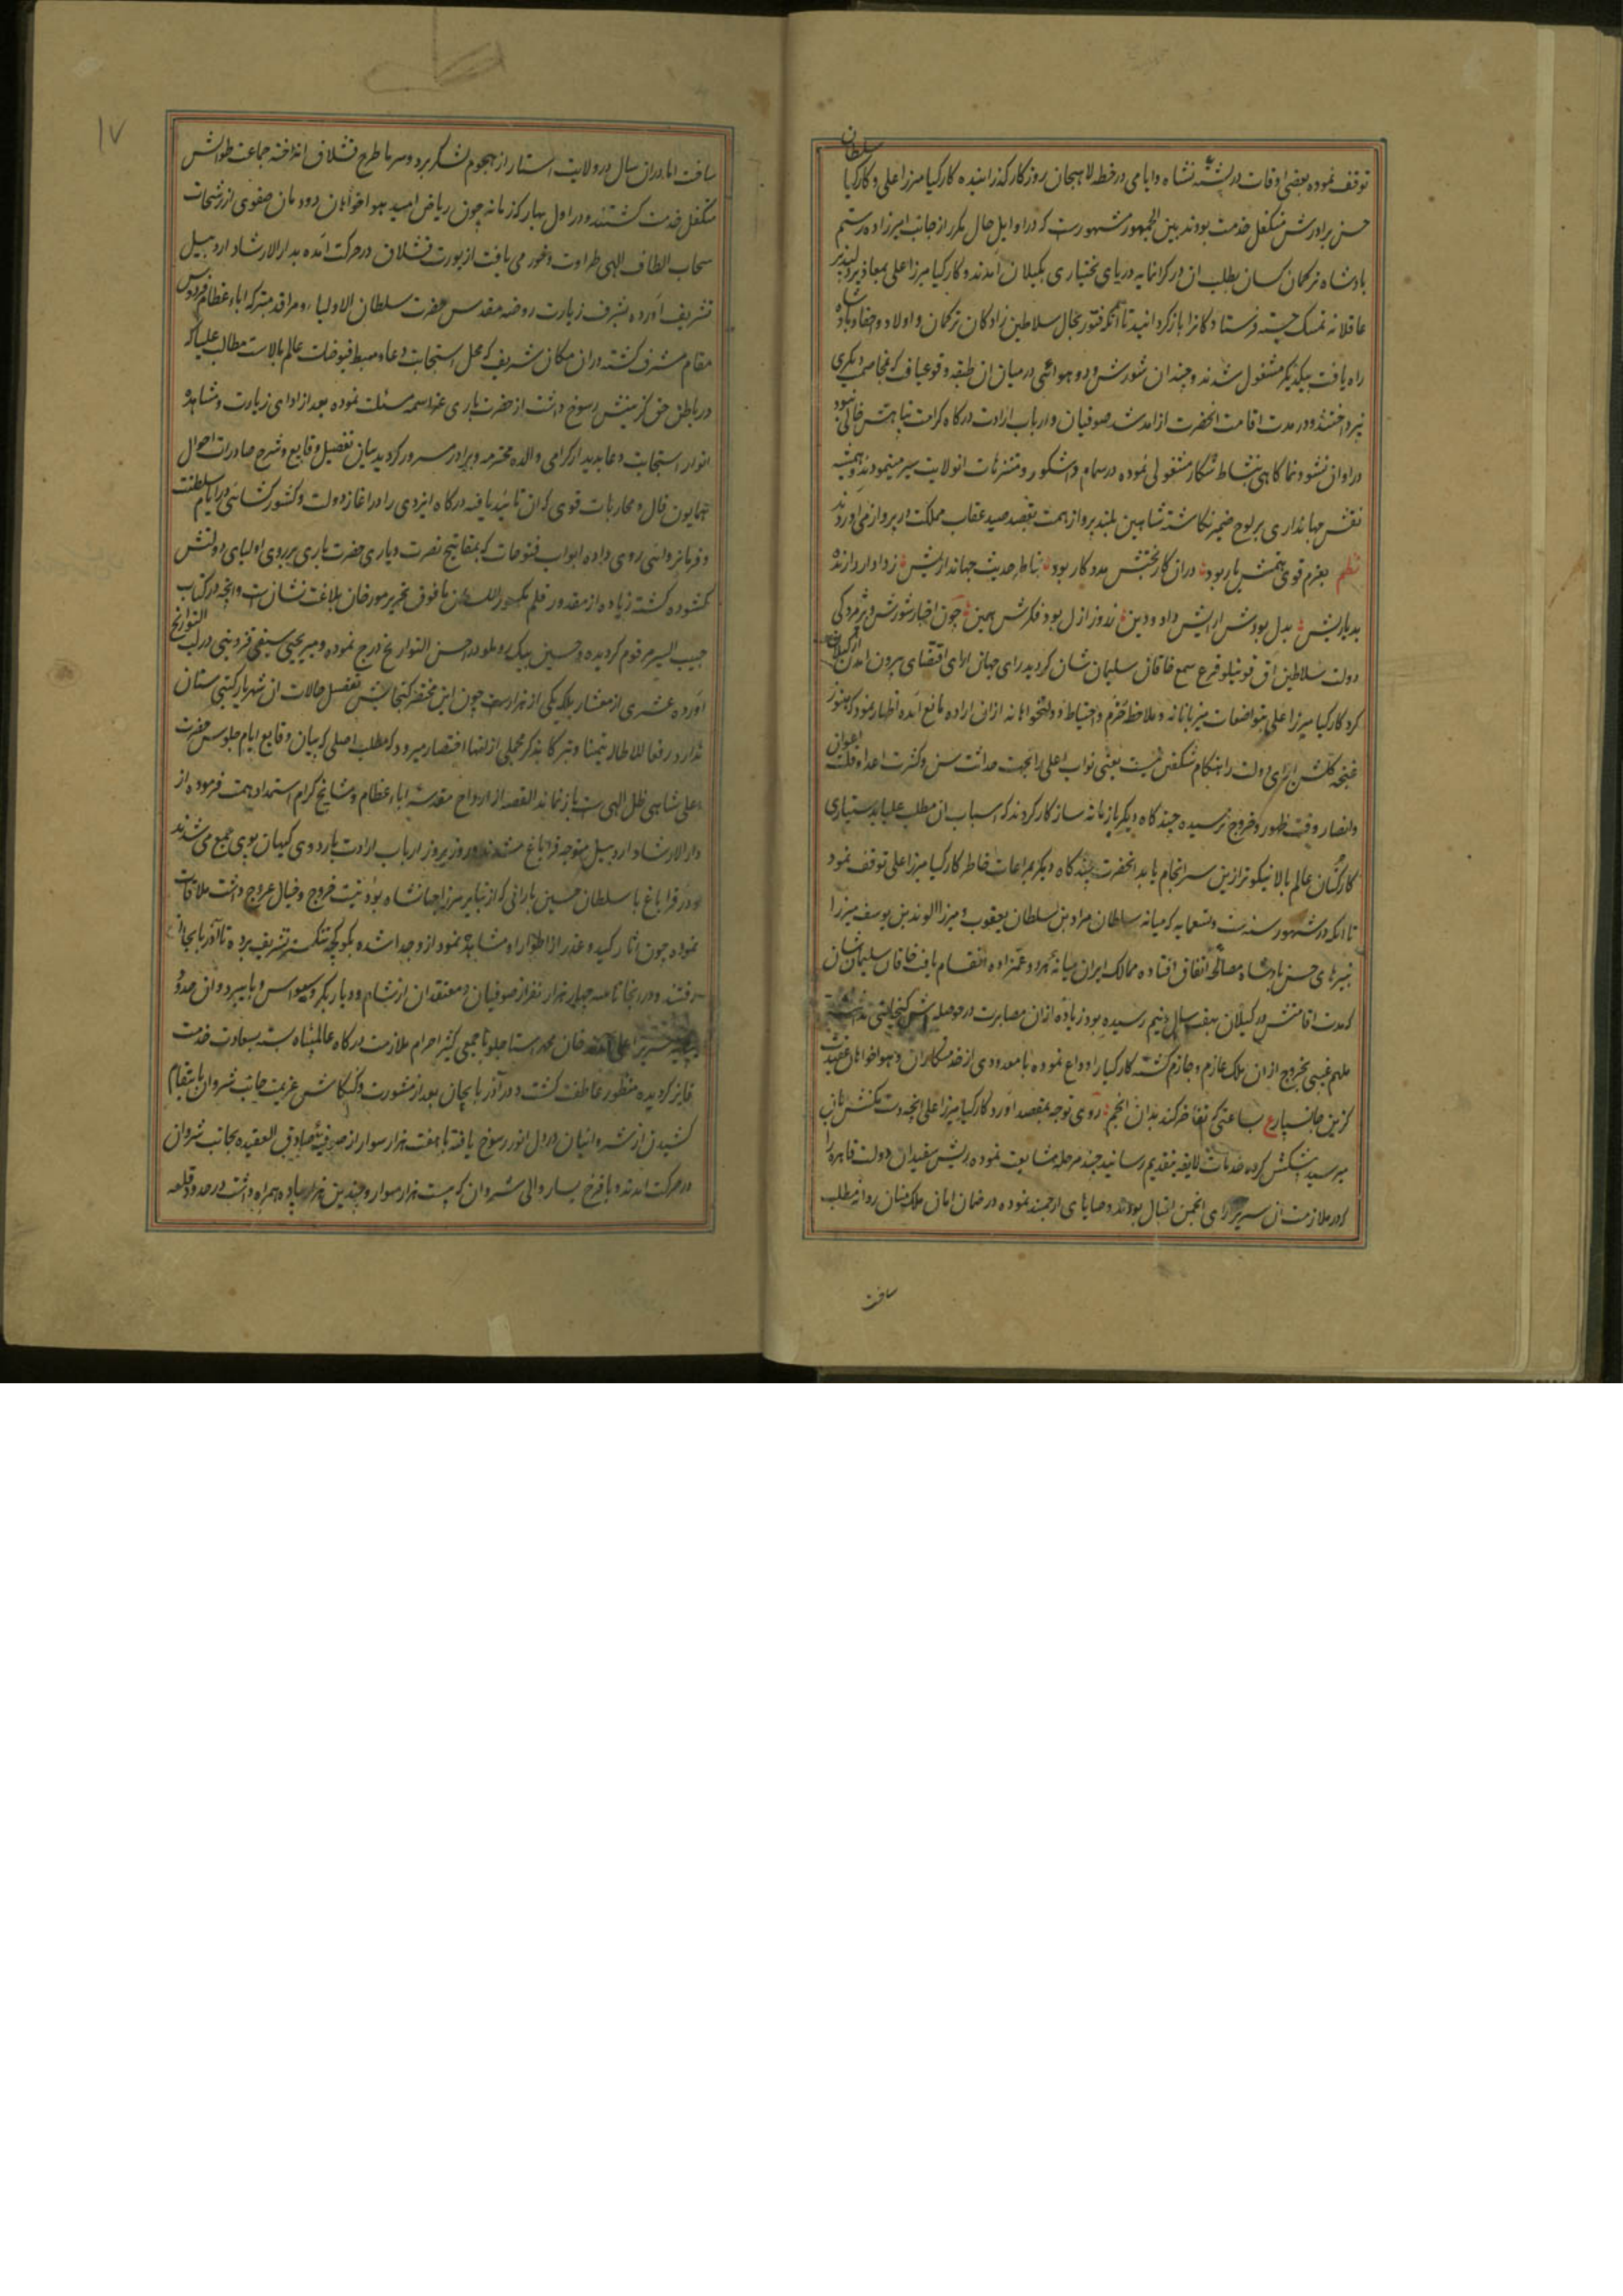 توقف نموده بعضی اوقات در لشته نشاه و ایامی در خطه لاهیجان روزکار کذرانیده کارکیا میرزا علی و کارکیا سلطان
حسن برادرش متکفل خدمت بودند بین الجمهور مشهورست که در اوایل حال مکرر از جانب امیرزاده رستم
بادشاه ترکمان کسان بطلب ان در کرانمایه دریای بختیاری بکیلان آمدند و کارکیا میرزا علی بمعاذیر دلپذیر
عاقلانه تمسک جسته فرستادکانرا باز کردانید تا آنکه فتور بحال سلاطین زادکان ترکمان و اولاد و احفاد حسن پادشاه
راه یافت بیکدیکر مشغول شدند و چندان شورش و دو هوائی در میان ان طبقه وقوع یافت که بمخاصمت دیکری
نپرداختند و در مدت اقامت انحضرت از آمد شد صوفیان و ارباب ارادت درکاه کرامت پناهش خالی نبود
در اوان نشو و نما کاهی بنشاط شکار مشغولی نموده در سمام و اشکور و متنزهات انولایت سیر مینمودند و همیشه
نقش جهانداری بر لوح ضمیر نکاشته شاهین بلند پرواز همت بقصد صید عقاب مملکت در پرواز می آوردند
نظم بعزم قوی همتش یار بود دران کار بختش مددکار بود نشاط حدیث جهانداریش ز دادار دارنده
بد یاریش بدل بودش آرایش داد و دین ز روز ازل بود فکرش همین چون اخبار شورش و پژمردکی
دولت سلاطین آق قوینلو قرع سمع خاقان سلیمان شان کردید رای جهان آرای اقتضای بیرون آمدن از کیلان
کرد کارکیا میرزا علی بتواضعات میزبانانه و ملاحظه حزم و احتیاط و دولتخواهانه ازان اراده مانع آمده اظهار نمود که هنوز
غنچه کلشن آرای دولت را هنکام شکفتن نیست یعنی نواب اعلی را بجهت حداثت سن و کثرت اعدا و قلت اعوان
و انصار وقت ظهور و خروج نرسیده چند کاه دیکر با زمانه ساز کار کردند که اسباب ان مطلب علیا بدستیاری
کارکنان عالم بالا نیکوتر ازین سرانجام یابد انحضرت چند کاه دیکر بمراعات خاطر کارکیا میرزا علی توقف نمود
تا آنکه در شهور سنه ست و تسعمایه که میانه سلطان مراد بن سلطان یعقوب و میرزا الوند بن یوسف میرزا
نبیرهای حسن پادشاه مصالحه اتفاق افتاده ممالک ایران میانه هر دو عمزاده انقسام یافت خاقان سلیمان شان
که مدت اقامتش در کیلان بهفت سال و نیم رسیده بود زیاده ازان مصابرت در حوصله اش کنجایش نداشت
ملهم غیبی بخروج ازان ملک عازم و جازم کشته کارکیا را وداع نموده با معدودی از خدمتکاران و هواخواهان عقیدت
کزین جان سپار ع بساعتی که تفاخر کند بدان انجم روی توجه بمقصد آورد کارکیا میرزا علی آنچه دست مکنتش بان
میرسید پیشکش کرده خدمات لایقه بتقدیم رسانید چند مرحله مشایعت نموده ریش سفیدان دولت قاهره را
که در ملازمت آن سریر آرای انجمن اقبال بودند وصایای ارجمند نموده در ضمان امان ملک منان روانه مطلب
ساخت
١٧
ساخت اما دران سال در ولایت استارا از هجوم لشکر برد و سرما طرح قشلاق انداخته جماعت طوالش
متکفل خدمت کشتند و در اول بهار که زمانه چون ریاض امید هواخواهان دودمان صفوی از رشحات
سحاب الطاف الهی طراوت و خضرت می یافت از یورت قشلاق در حرکت آمده بدار الارشاد اردبیل
تشریف آورده بشرف زیارت روضه مقدس حضرت سلطان الاولیاء و مراقد متبرکه آباء عظام فردوس
مقام مشرف کشته دران مکان شریف که محل استجابت دعا و مهبط فیوضات عالم بالاست مطالب علیا که
در باطن حق کزینش رسوخ داشت از حضرت باری عز اسمه مسئلت نموده بعد از ادای زیارت و مشاهده
انوار استجابت دعا بدیدار کرامی والده محترمه و برادر مسرور کردید بیان تفصیل وقایع و شرح صادرات احوال
همایون فال و محاربات قوی که ان تائید یافته درکاه ایزدی را در آغاز دولت و کشورکشائی و ایام سلطنت
و فرمانروائی روی داده ابواب فتوحات که بمفاتیح نصرت و یاری حضرت باری بر روی اولیای دولتش
کشوده کشته زیاده از مقدور قلم مکسور اللسان ما فوق تحریر مورخان بلاغت نشانست و انچه در کتاب
حبیب السیر مرقوم کردیده و حسین بیک روملو در احسن التواریخ درج نموده و میر یحیی سیفی قزوینی در لب التواریخ
آورده عشری از معشار بلکه یکی از هزارست چون این مختصر کنجایش تفصیل حالات ان شهریار کیتی ستان
ندارد رفعا للاطاله تیمنا و تبرکا بذکر مجملی ازانها اختصار میرود که مطلب اصلی که بیان وقایع ایام جلوس حضرت
اعلی شاهی ظل الهی ست باز نماند القصه از ارواح مقدسه آباء عظام و مشایخ کرام استمداد همت فرموده از
دار الارشاد اردبیل متوجه قراباغ شدند و روز بروز ارباب ارادت باردوی کیهان پوی جمع می شدند
و در قراباغ با سلطان حسین بارانی که از نبایر میرزا جهانشاه بود و نیت خروج و خیال عروج داشت ملاقات
نموده چون آثار کید و غدر از اطوار او مشاهده نمود ازو جدا شده بکوکچه تنکیز تشریف برده تا آذربایجان
رفتند و در انجا تا سه چهار هزار نفر از صوفیان و معتقدان از شام و دیار بکر و سیواس و بابیرد وان حدود
خان محمد استاجلو با جمعی کثیر احرام ملازمت درکاه عالمپناه بسته بسعادت خدمت
فایز کردیده منظور عاطفت کشت و در آذربایجان بعد از مشورت و کنکاش عزیمت جانب شروان بانتقام
کشیدن از شروانیان در دل انور رسوخ یافته با هفت هزار سوار از صوفیه صادق العقیده بجانب شروان
در حرکت آمدند و با فرخ یسار والی شروان که بیست هزار سوار و چندین هزار پیاده همراه داشت در حدود قلعه